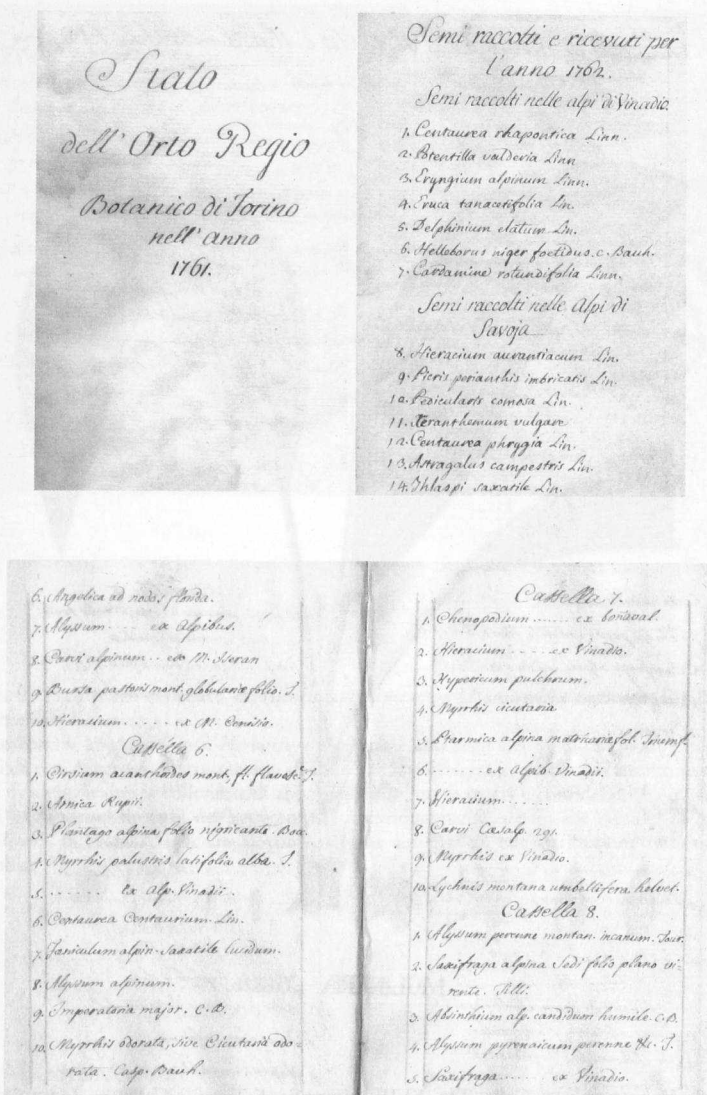 Stato
dell' Orto Regio
Botanico di Torino
nell' anno
1761.
Semi raccolti e ricevuti per
l'anno 1762.
Semi raccolti nelle alpi di Vinadio.
1. Centaurea rhapontica Linn.
2. Potentilla valderia Linn
3. Eryngium alpinum Linn.
4. Eruca tanacetifolia Lin.
5. Delphinium elatum Lin.
6. Helleborus niger foetidus. c. Bauh.
7. Cardamine rotundifolia Linn.
Semi raccolti nelle Alpi di
Savoja
8. Hieracium aurantiacum Lin.
9. Picris perianthis imbricatis Lin.
10. Pedicularis comosa Lin.
11. Xeranthemum vulgare
12. Centaurea phrygia Lin.
13. Astragalus campestris Lin.
14. Thlaspi saxatile Lin.
6. Angelica ad nodos florida.
7. Alyssum ..... ex Alpibus.
8. Carvi alpinum .. ex M. Iseran
9. Bursa pastoris mont. globulariæ folio. T.
10. Hieracium ..... ex M. Cenisio.
Cassella 6.
1. Cirsium acanthoides mont, fl. flavesc. T.
2. Arnica Rupii.
3. Plantago alpina folio nigricante. Boc.
4. Myrrhis palustris latifolia alba. T.
5. ...... ex Alp. Vinadii.
6. Centaurea Centaurium. Lin.
7. Faniculum alpin. Saxatile lucidum.
8. Alyssum alpinum.
9. Imperatoria major. C. B.
10. Myrrhis odorata, sive Cicutaria odo-
rata. Casp. Bauh.
Cassella 7.
1. Chenopodium ...... ex
2. Hieracium ..... ex Vinadio.
3. Hypericum pulchrum.
4. Myrrhis cicutaria
5. Ptarmica alpina matricariæ fol. Triumf.
6. ........ ex Alpib. Vinadii.
7. Hieracium ......
8. Carvi Cæsalp. 291.
9. Myrrhis ex Vinadio.
10. Lychnis montana umbellifera helvet.
Cassella 8.
1. Alyssum perenne montan. incanum. Tour.
2. Saxifraga alpina Sedi folio plano vi-
rente. Tilli.
3. Absinthium alp. candidum humile. C. B.
4. Alyssum pyrenaicum perenne &c. T.
5. Saxifraga ...... ex Vinadio.